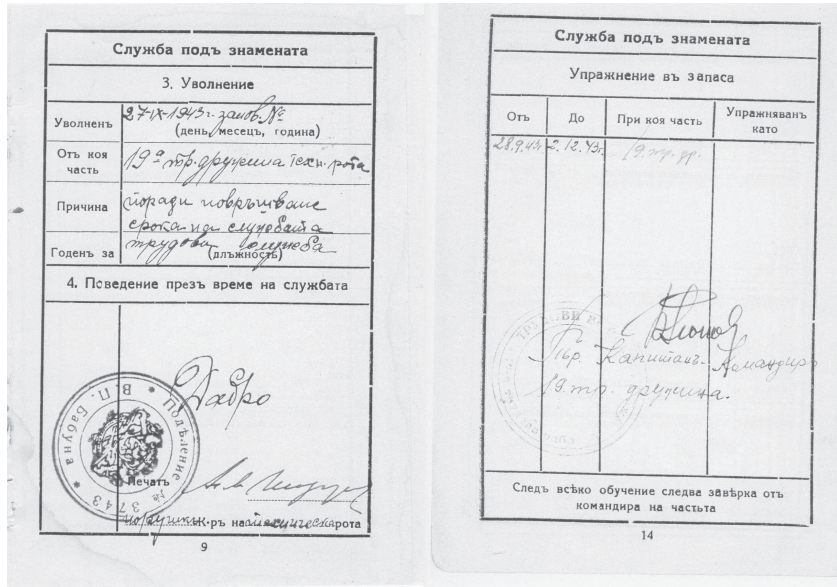 Служба подъ знамената
3. Уволнение
Уволненъ
27-IX-1943г. запов. №
(день, месецъ, година)
Отъ коя
часть
19а тр. дружина техн. рота
Причина
поради
срока на службата
Годенъ за
трудова служба
(длъжность)
4. Поведение презъ време на службата
Добро
Подѣление № 3743 * В.П. Бабуна *
Печатъ
к-ръ на техническа рота
9
Служба подъ знамената
Упражнение въ запаса
Отъ
До
При коя часть
Упражняванъ
като
28.9.43г.
2.12.43г.
19. тр. др.
ТРУДОВИ
Капитанъ - Командиръ
19. тр. дружина.
Следъ всѣко обучение следва завѣрка отъ
командира на частьта
14